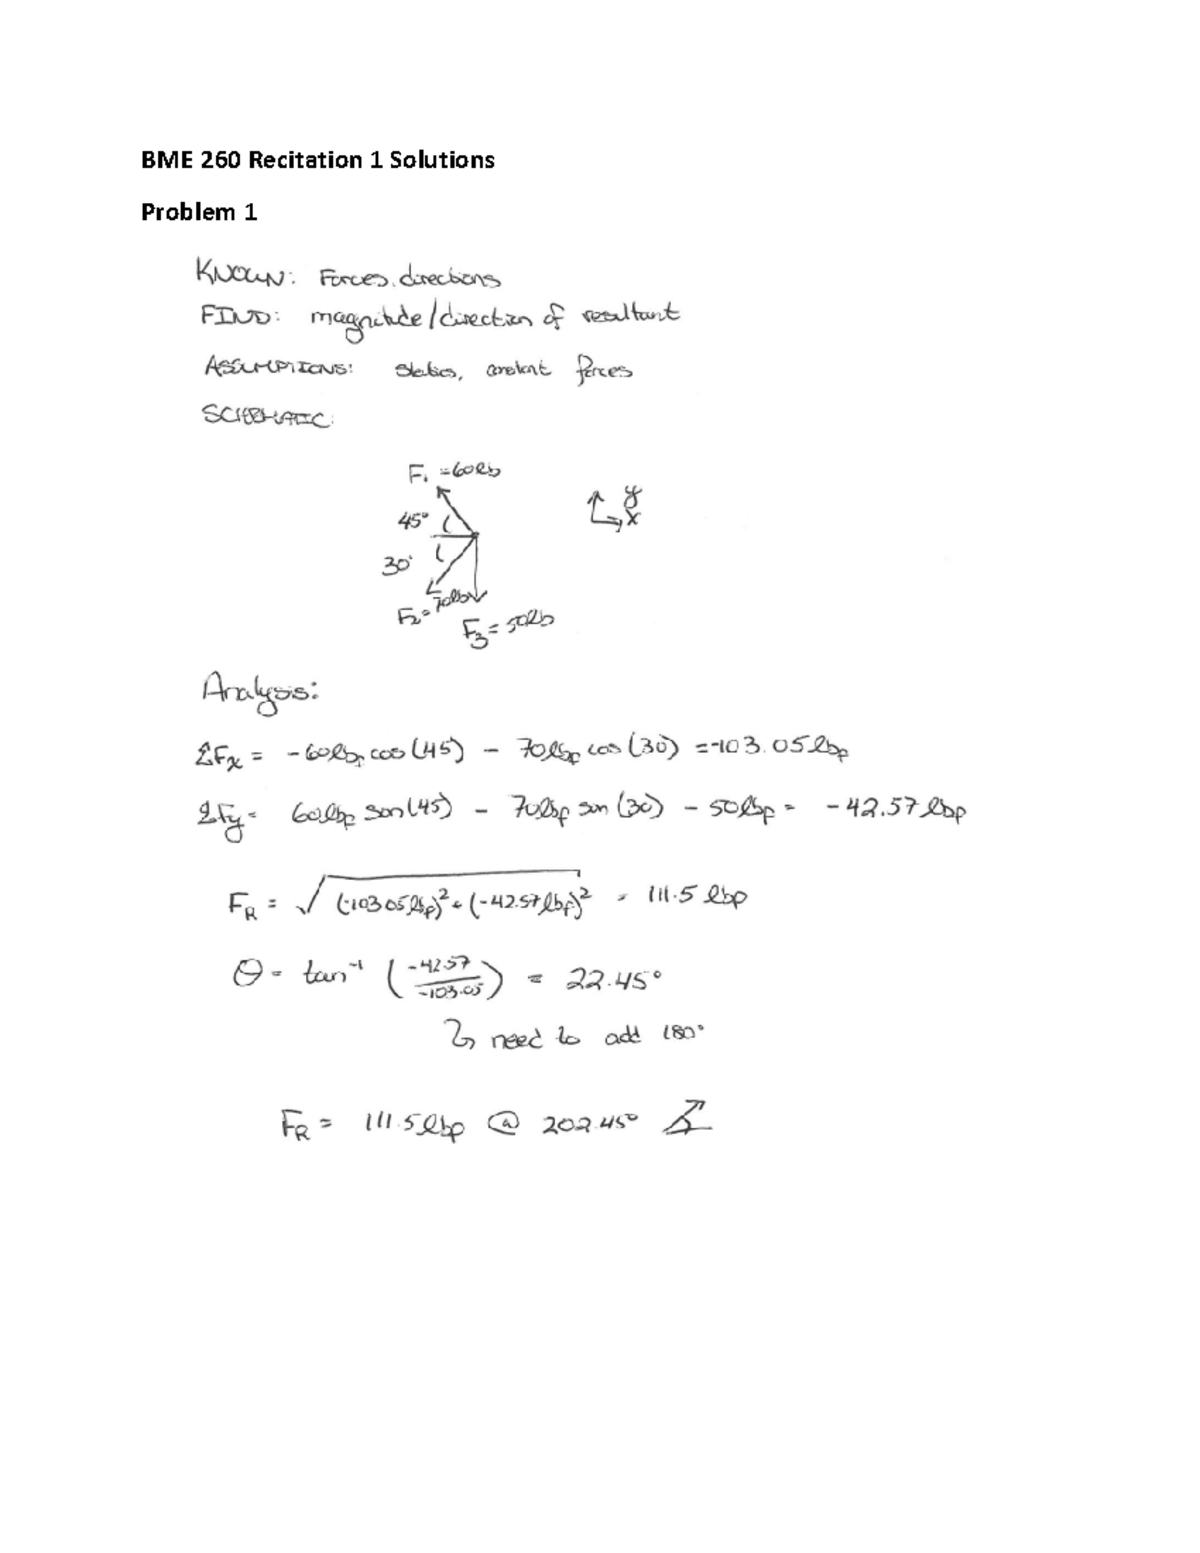 BME 260 Recitation 1 Solutions
Problem 1
KNOWN: Forces, directions
FIND: magnitude/direction of resultant
ASSUMPTIONS: statics, constant forces
SCHEMATIC:
F₁ = 60lb
y
45°
x
30°
F₂ = 70lb
F₃ = 50lb
Analysis:
ΣFx = -60lbf cos(45) - 70lbf cos(30) = -103.05 lbf
ΣFy = 60lbf sin(45) - 70lbf sin(30) - 50lbf = -42.57 lbf
FR = √(-103.05lbf)² + (-42.57lbf)² = 111.5 lbf
θ = tan⁻¹ (-42.57/-103.05) = 22.45°
↳ need to add 180°
FR = 111.5 lbf @ 202.45°